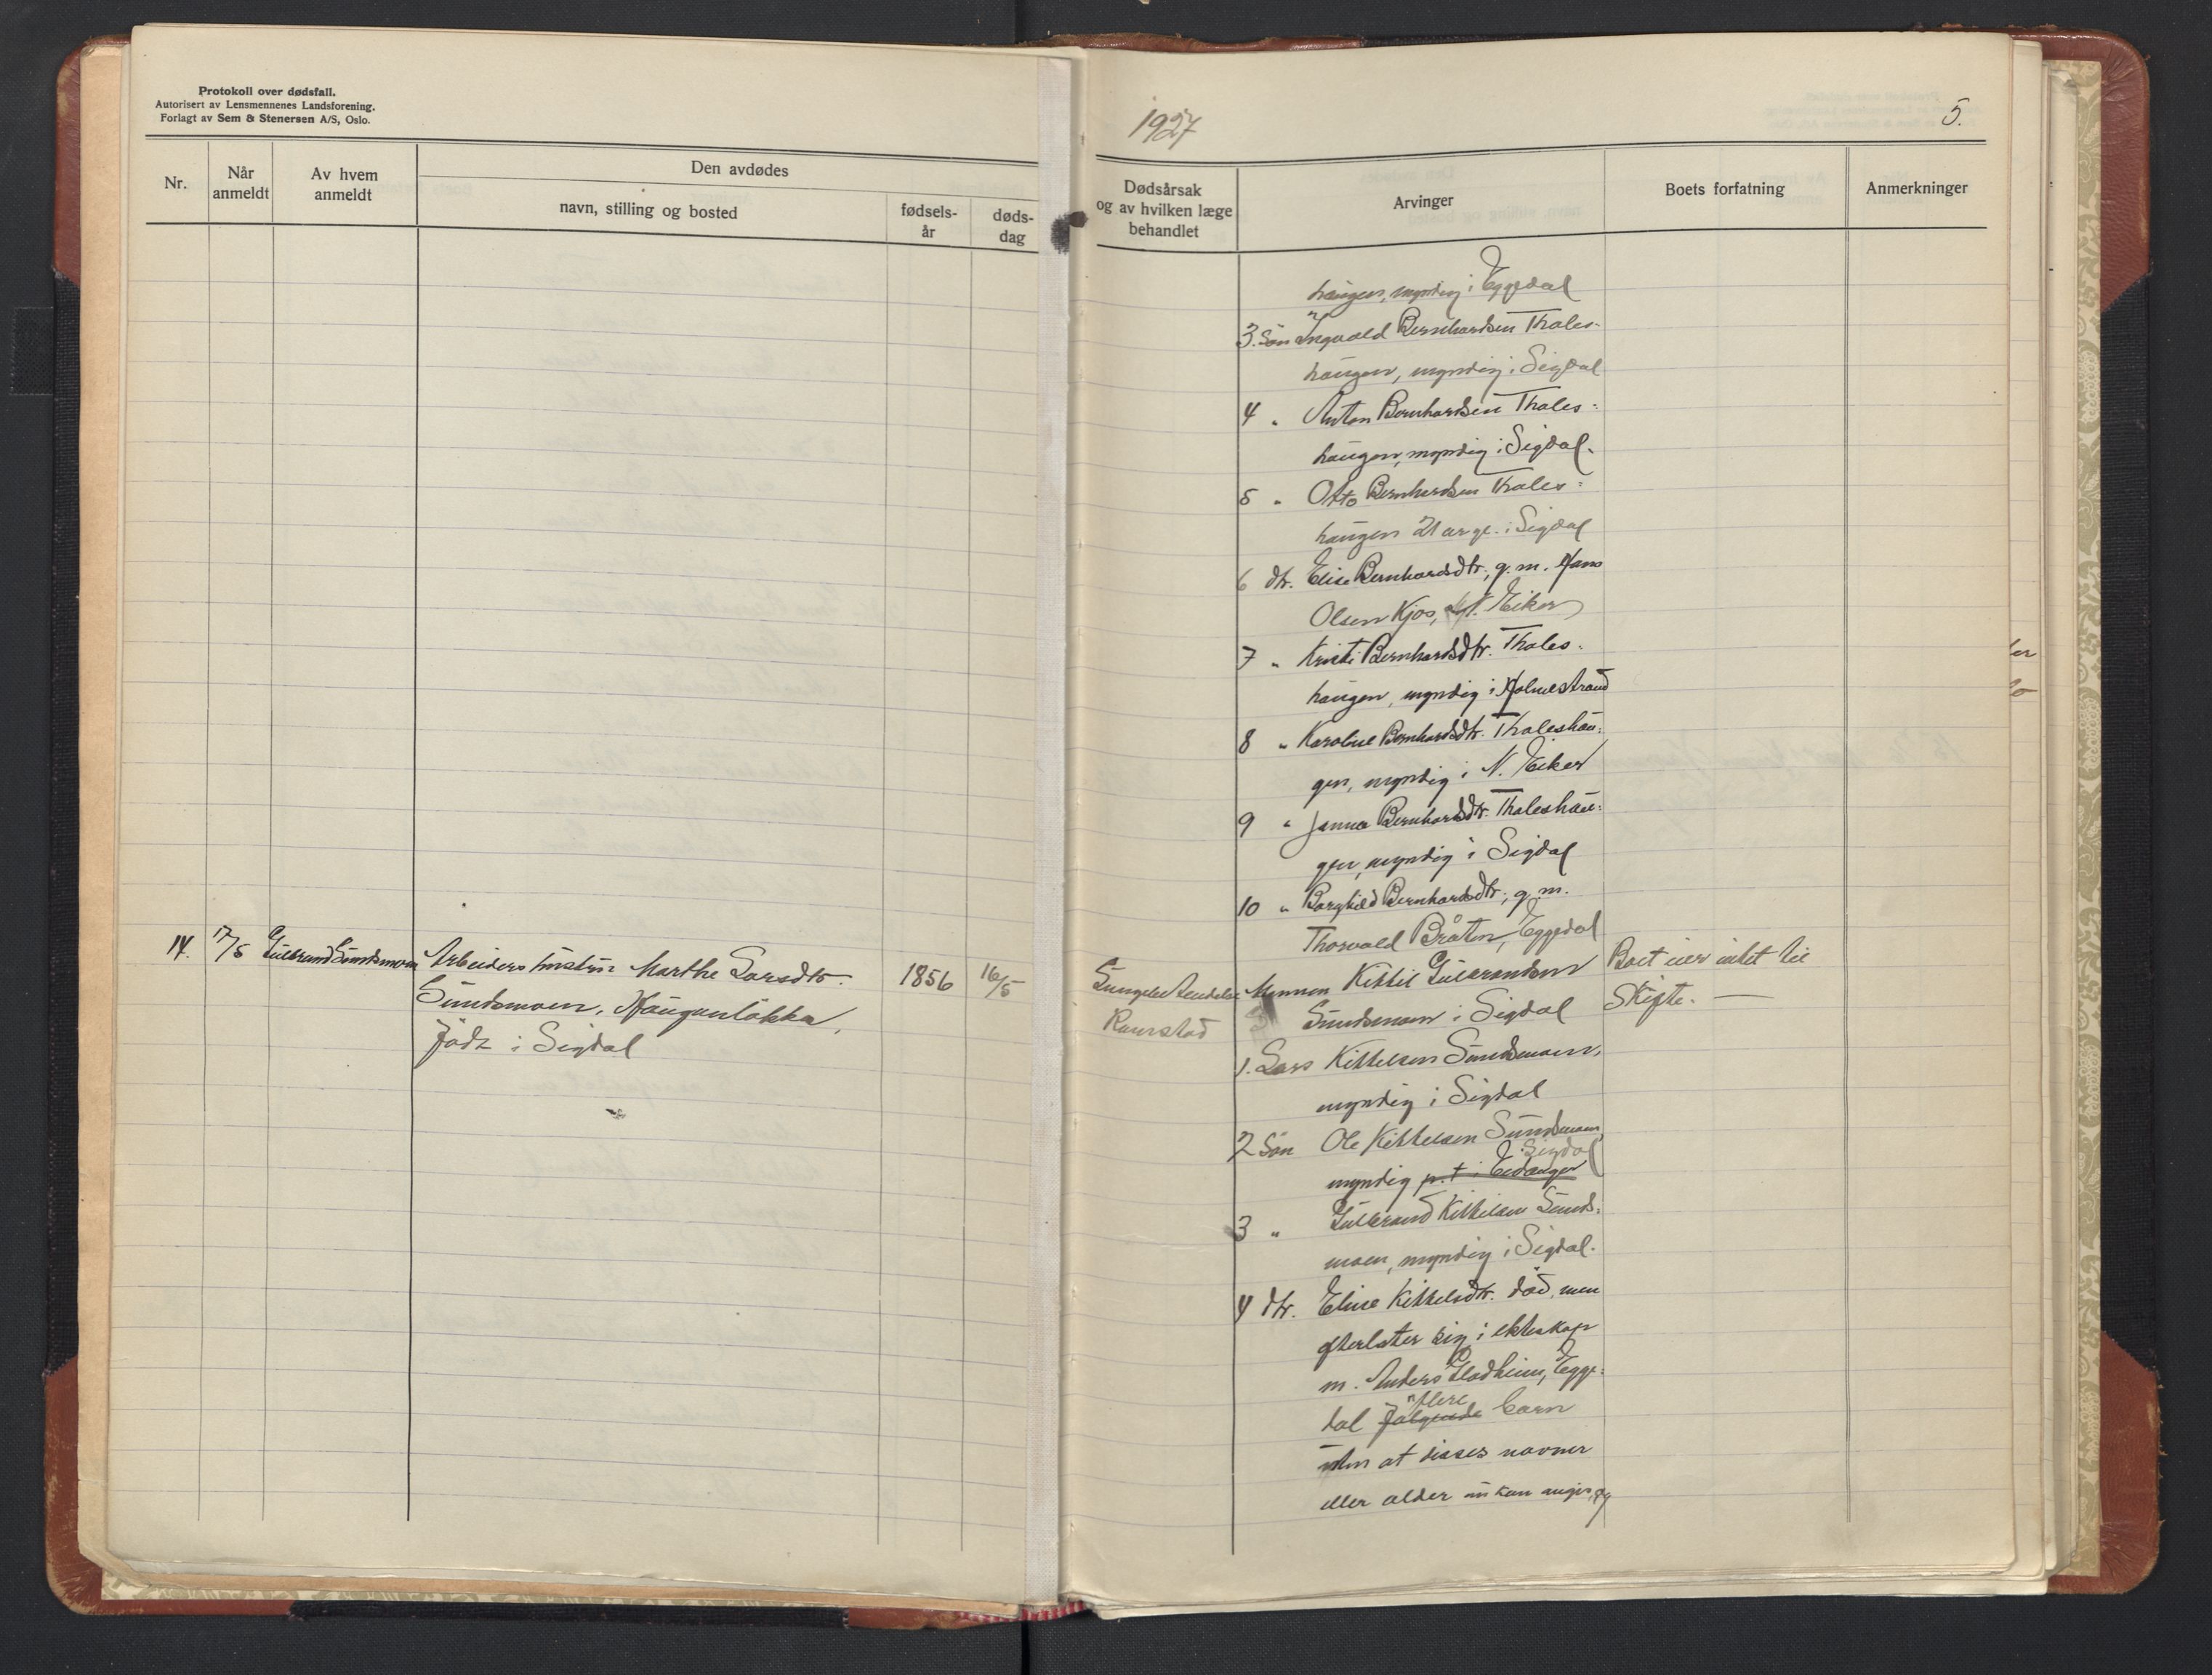 Protokoll over dødsfall.
Autorisert av Lensmennenes Landsforening.
Forlagt av Sem & Stenersen A/S, Oslo.
Nr.
Når anmeldt
Av hvem anmeldt
Den avdødes
navn, stilling og bosted
fødsels-
år
døds-
dag
14. 17/5 Gulbrand Sundsmoen Arbeiders hustru Marthe Larsdtr. 1856 16/5
Sundsmoen, Haugenløkka,
født i Sigdal
1927
5.
Dødsårsak
og av hvilken læge
behandlet
Arvinger
Boets forfatning
Anmerkninger
haugen, myndig i Eggedal
3. Søn Ingvald Bernhardsen Thales-
haugen, myndig i Sigdal
4 " Anton Bernhardsen Thales-
haugen, myndig i Sigdal.
5 " Otto Bernhardsen Thales-
haugen 21 år gl. i Sigdal
6 dtr. Elise Bernhardsdtr., g. m. Hans
Olsen Kjos, N. Eiker
7 " Kristi Bernhardsdtr. Thales-
haugen, myndig i Holmestrand
8 " Karoline Bernhardsdtr. Thaleshau-
gen, myndig i N. Eiker
9 " Janna Bernhardsdtr. Thaleshau-
gen, myndig i Sigdal
10 " Borghild Bernhardsdtr., g. m.
Thorvald Bråten, Eggedal
Mannen Kittil Gulbrandsen
Sundsmoen i Sigdal
Ramstad
Boet eier intet til
Skifte. —
1. Lars Kittelsen Sundsmoen,
myndig i Sigdal
2 Søn Ole Kittelsen Sundsmoen,
i Sigdal
myndig p.t. i Eidanger
3 " Gulbrand Kittilsen Sunds-
moen, myndig i Sigdal.
4 dtr. Eline Kittelsdtr. død, men
efterlater sig i ekteskap
m. Anders Gladheim, Egge-
flere
dal følgende barn
uten at disses navner
eller alder nu kan angis, og